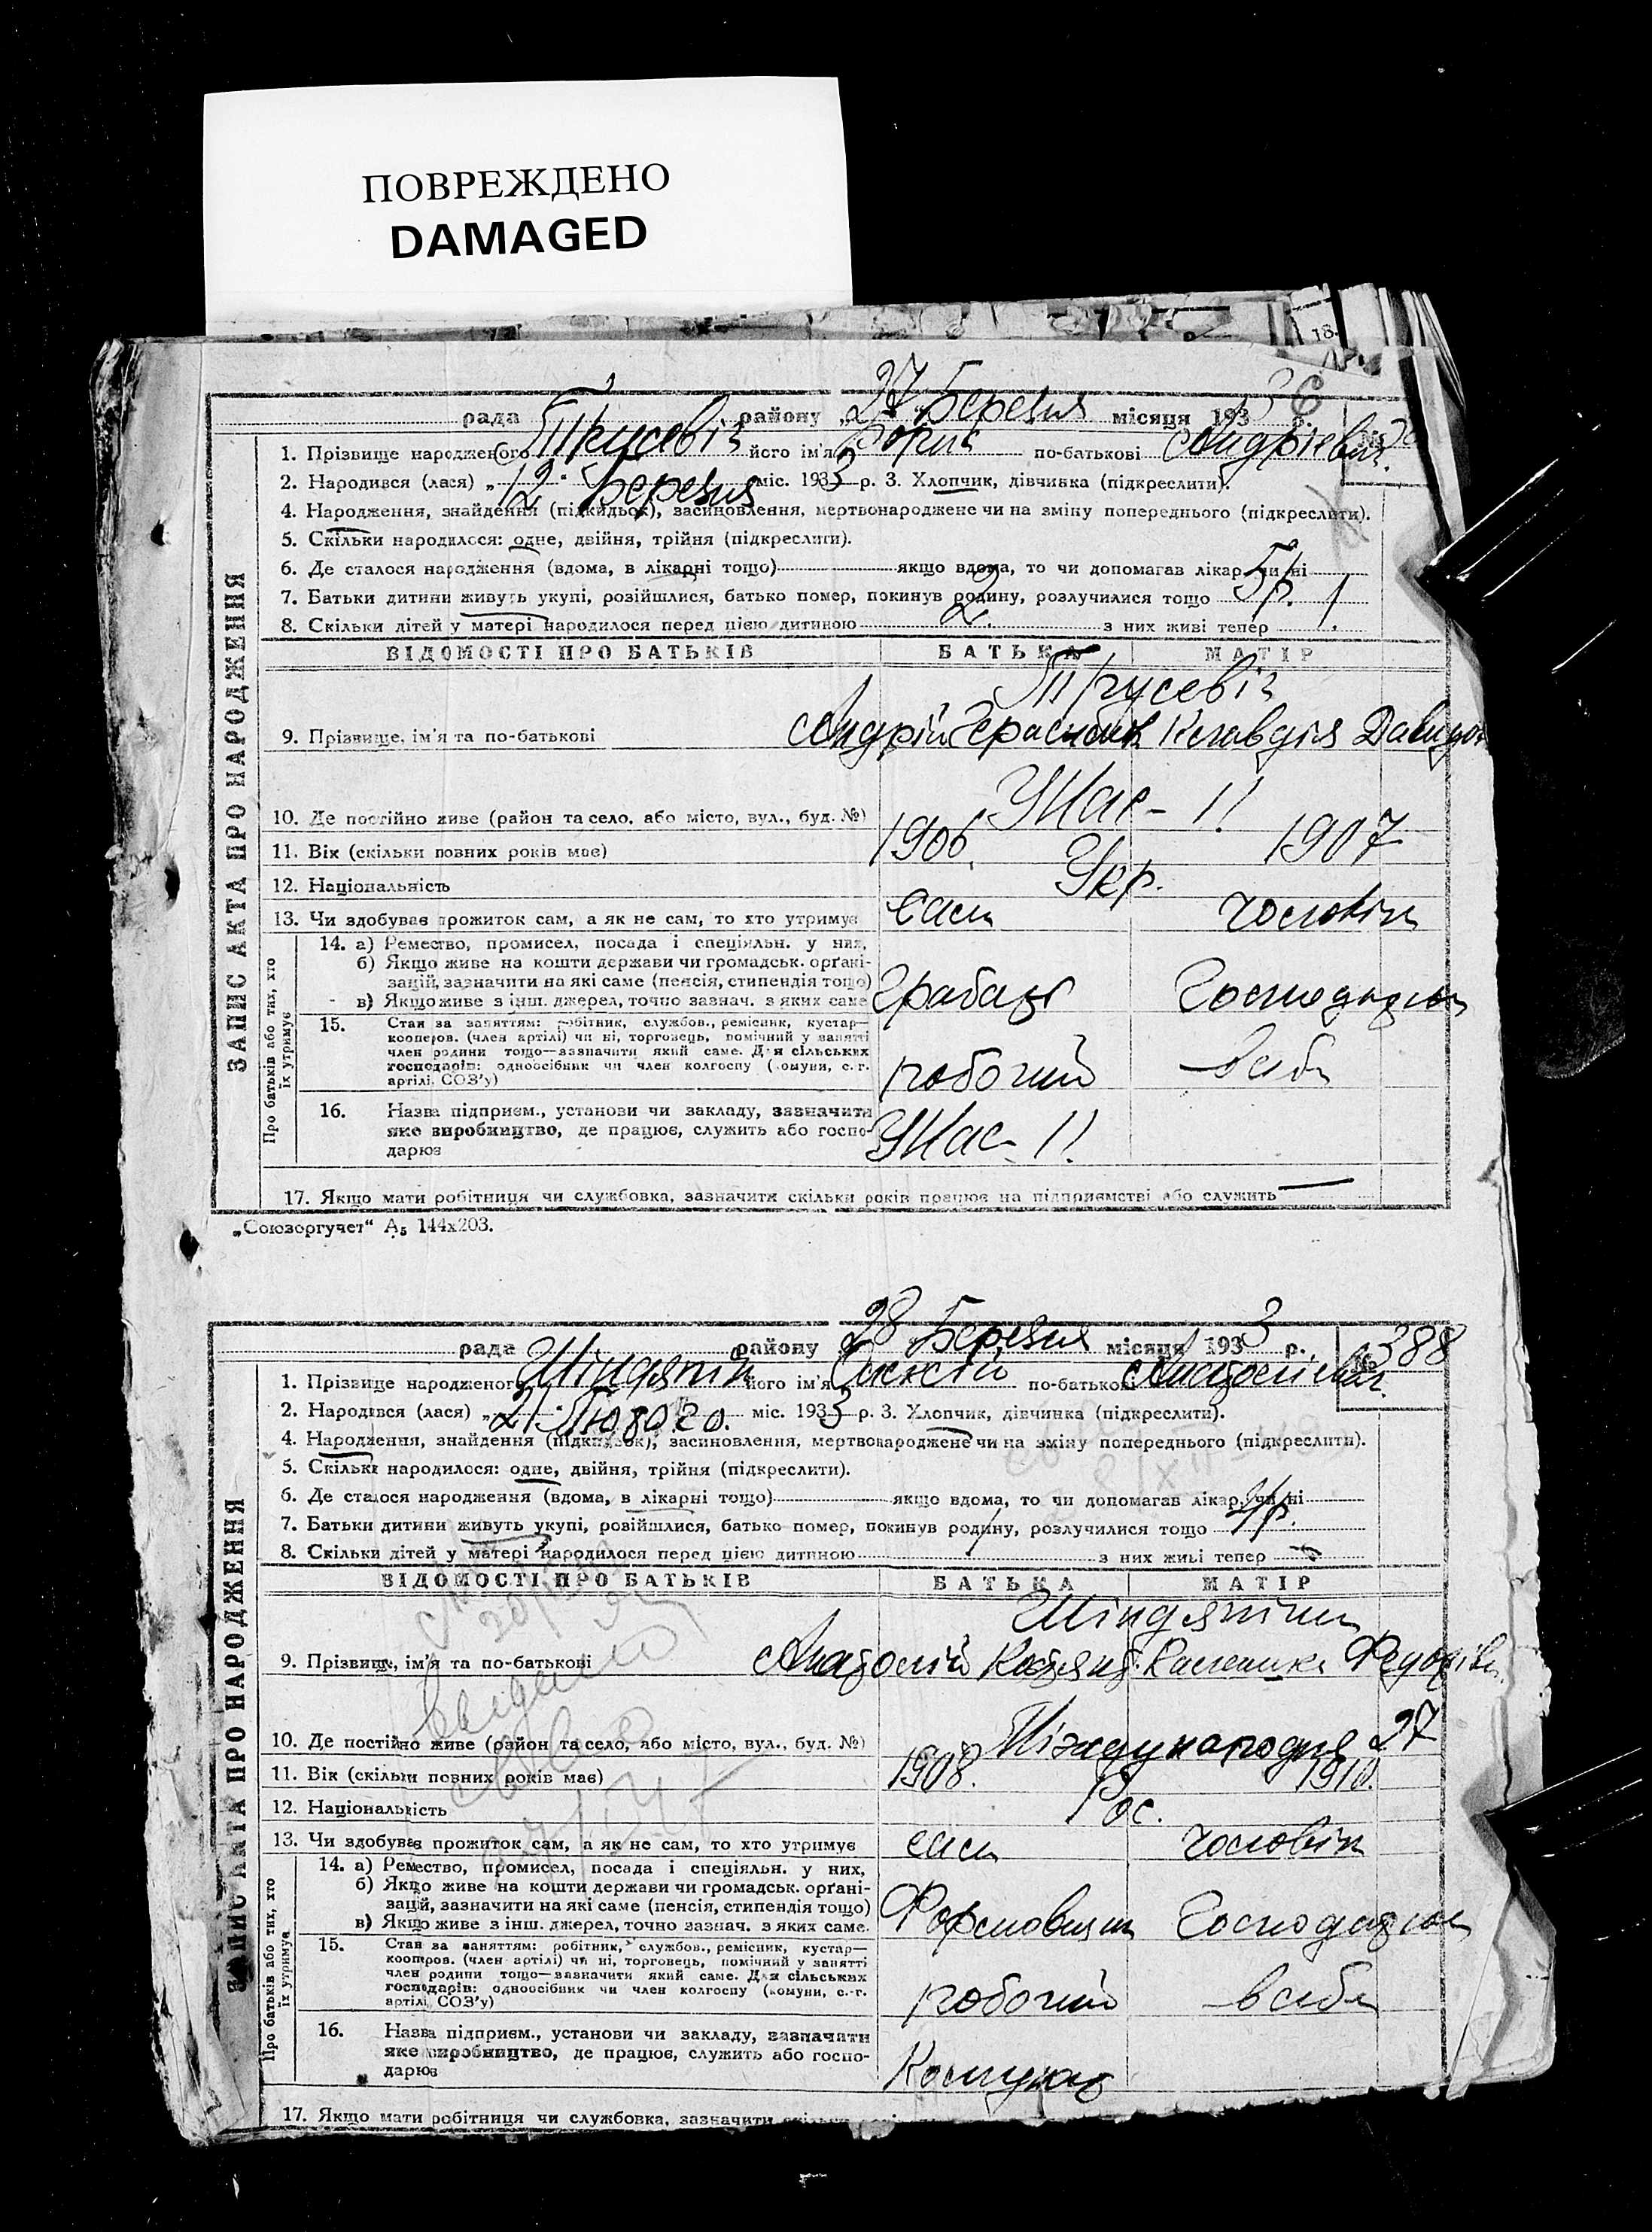 ПОВРЕЖДЕНО
DAMAGED
18
ЗАПИС АКТА ПРО НАРОДЖЕННЯ
рада району „27“ Березня місяця 1933 р. №
1. Прізвище народженого Трусевіч його ім'я Борис по-батькові Андрієвич.
2. Народився (лася) „12“ Березня міс. 1933 р. 3. Хлопчик, дівчинка (підкреслити).
4. Народження, знайдення (підкидьок), засиновлення, мертвонароджене чи на зміну попереднього (підкреслити).
5. Скільки народилося: одне, двійня, трійня (підкреслити).
6. Де сталося народження (вдома, в лікарні тощо) якщо вдома, то чи допомагав лікар, чи ні
7. Батьки дитини живуть укупі, розійшлися, батько помер, покинув родину, розлучилися тощо 5 р.
8. Скільки дітей у матері народилося перед цією дитиною 2. з них живі тепер 1.
ВІДОМОСТІ ПРО БАТЬКІВ БАТЬКА МАТІР
Трусевіч
9. Прізвище, ім'я та по-батькові Андрій Герасимов. Клавдія Давидов
10. Де постійно живе (район та село, або місто, вул., буд. №)
11. Вік (скільки повних років має) 1906. 1907
12. Національність Укр.
13. Чи здобував прожиток сам, а як не сам, то хто утримує сам чоловік
Про батьків або тих, хто їх утримує
14. а) Ремество, промисел, посада і спеціяльн. у них,
б) Якщо живе на кошти держави чи громадськ. орґані-
зацій, зазначити на які саме (пенсія, стипендія тощо)
в) Якщо живе з інш. джерел, точно зазнач. з яких саме Грабарь Господарка
15. Стан за заняттям: робітник, службов., ремісник, кустар—
кооперов. (член артілі) чи ні, торговець, помічний у занятті
член родини тощо—зазначити який саме. Для сільських
господарів: одноосібник чи член колгоспу (комуни, с.-г.
артілі, СОЗ'у) робочий
16. Назва підприєм., установи чи закладу, зазначити
яке виробництво, де працює, служить або госпо-
дарює
17. Якщо мати робітниця чи службовка, зазначити скільки років працює на підприємстві або служить —
„Союзоргучет“ А5 144х203.
ЗАПИС АКТА ПРО НАРОДЖЕННЯ
рада району „28“ Березня місяця 1933 р. № 388
1. Прізвище народженого Шіндяпін його ім'я по-батькові Анатолієвич.
2. Народився (лася) „21“ Лютого. міс. 1933 р. 3. Хлопчик, дівчинка (підкреслити).
4. Народження, знайдення (підкидьок), засиновлення, мертвонароджене чи на зміну попереднього (підкреслити).
5. Скільки народилося: одне, двійня, трійня (підкреслити).
6. Де сталося народження (вдома, в лікарні тощо) якщо вдома, то чи допомагав лікар, чи ні
7. Батьки дитини живуть укупі, розійшлися, батько помер, покинув родину, розлучилися тощо 4 р.
8. Скільки дітей у матері народилося перед цією дитиною 1 з них живі тепер
ВІДОМОСТІ ПРО БАТЬКІВ БАТЬКА МАТІР
Шіндяпіни
9. Прізвище, ім'я та по-батькові Анатолій Федорівн.
10. Де постійно живе (район та село, або місто, вул., буд. №) Міжнународня 27
11. Вік (скільки повних років має) 1908. 1910.
12. Національність Рос.
13. Чи здобував прожиток сам, а як не сам, то хто утримує сам чоловік
Про батьків або тих, хто їх утримує
14. а) Ремество, промисел, посада і спеціяльн. у них,
б) Якщо живе на кошти держави чи громадськ. орґані-
зацій, зазначити на які саме (пенсія, стипендія тощо)
в) Якщо живе з інш. джерел, точно зазнач. з яких саме. Формовщик Господарка
15. Стан за заняттям: робітник, службов., ремісник, кустар—
кооперов. (член артілі) чи ні, торговець, помічний у занятті
член родини тощо—зазначити який саме. Для сільських
господарів: одноосібник чи член колгоспу (комуни, с.-г.
артілі, СОЗ'у) робочий
16. Назва підприєм., установи чи закладу, зазначити
яке виробництво, де працює, служить або госпо-
дарює
17. Якщо мати робітниця чи службовка, зазначити